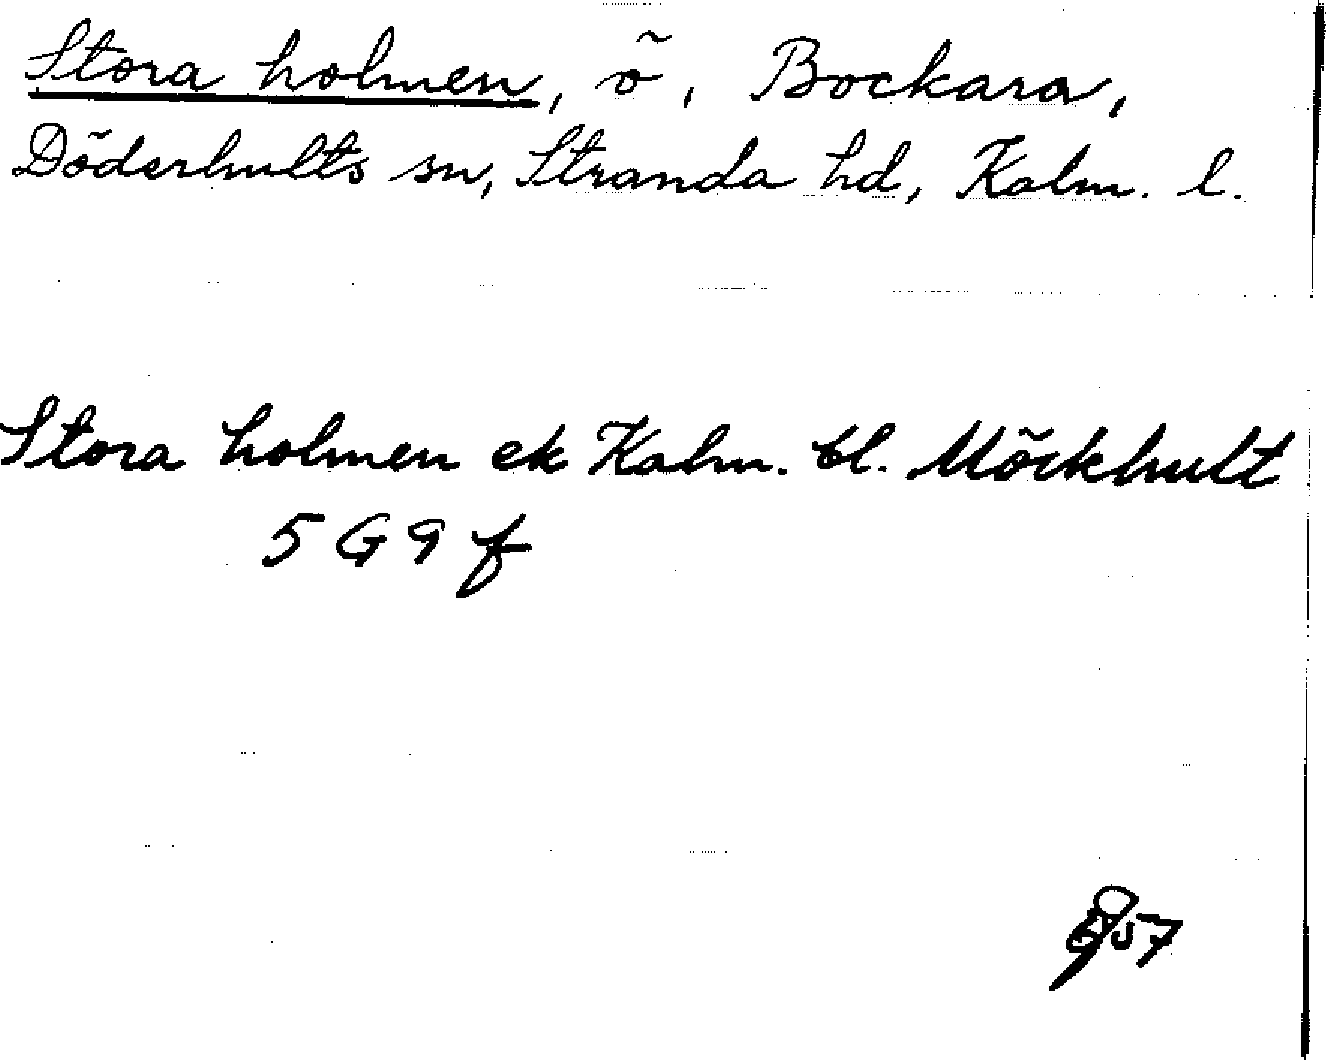 Stora holmen, ö, Bockara,
Döderhults sn, Stranda hd, Kalm. l.
Stora holmen ek Kalm. bl. Möckhult
5 G 9 f
57